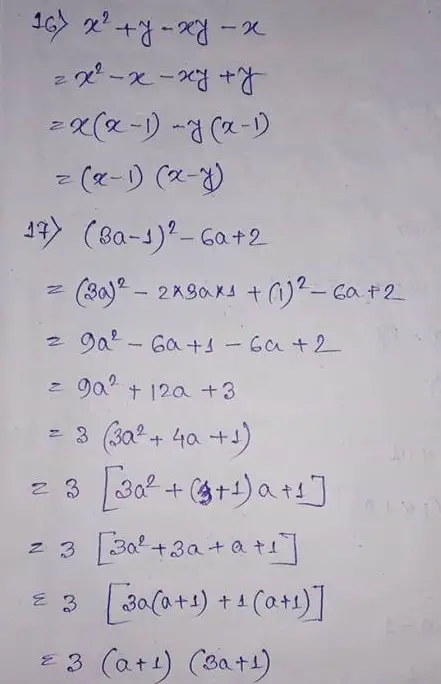 16) x² + y - xy - x
= x² - x - xy + y
= x(x-1) - y(x-1)
= (x-1) (x-y)
17) (3a-1)² - 6a + 2
= (3a)² - 2×3a×1 + (1)² - 6a + 2
= 9a² - 6a + 1 - 6a + 2
= 9a² + 12a + 3
= 3 (3a² + 4a + 1)
= 3 [3a² + (3+1) a + 1]
= 3 [3a² + 3a + a + 1]
= 3 [3a(a+1) + 1(a+1)]
= 3 (a+1) (3a+1)